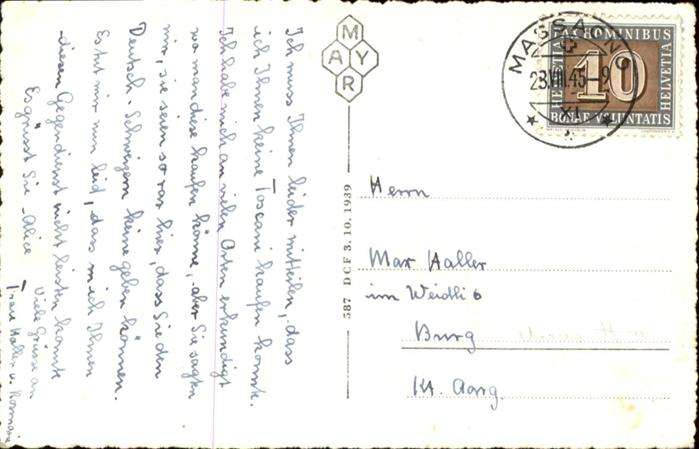 Ich muss Ihnen leider mitteilen, dass
ich Ihnen keine Toscani kaufen konnte.
Ich habe mich an vielen Orten erkundigt
wo man diese kaufen könne, aber Sie sagten
mir, sie seien so rar hier, dass Sie den
Deutsch-Schweizern keine geben können.
Es tut mir nun leid, dass ich Ihnen
diesen Gegendienst nicht leisten konnte
Es grüsst Sie Alice
Viele Grüsse an
Frau Haller u. Rosmarie
MAYR
587 DCF 3.10.1939
MASSAGNO
23.VIII.45-9
XI
PAX HOMINIBUS
HELVETIA
10
HELVETIA
BONAE VOLUNTATIS
Herrn
Max Haller
im Weidli 6
Burg
Kt. Aarg.